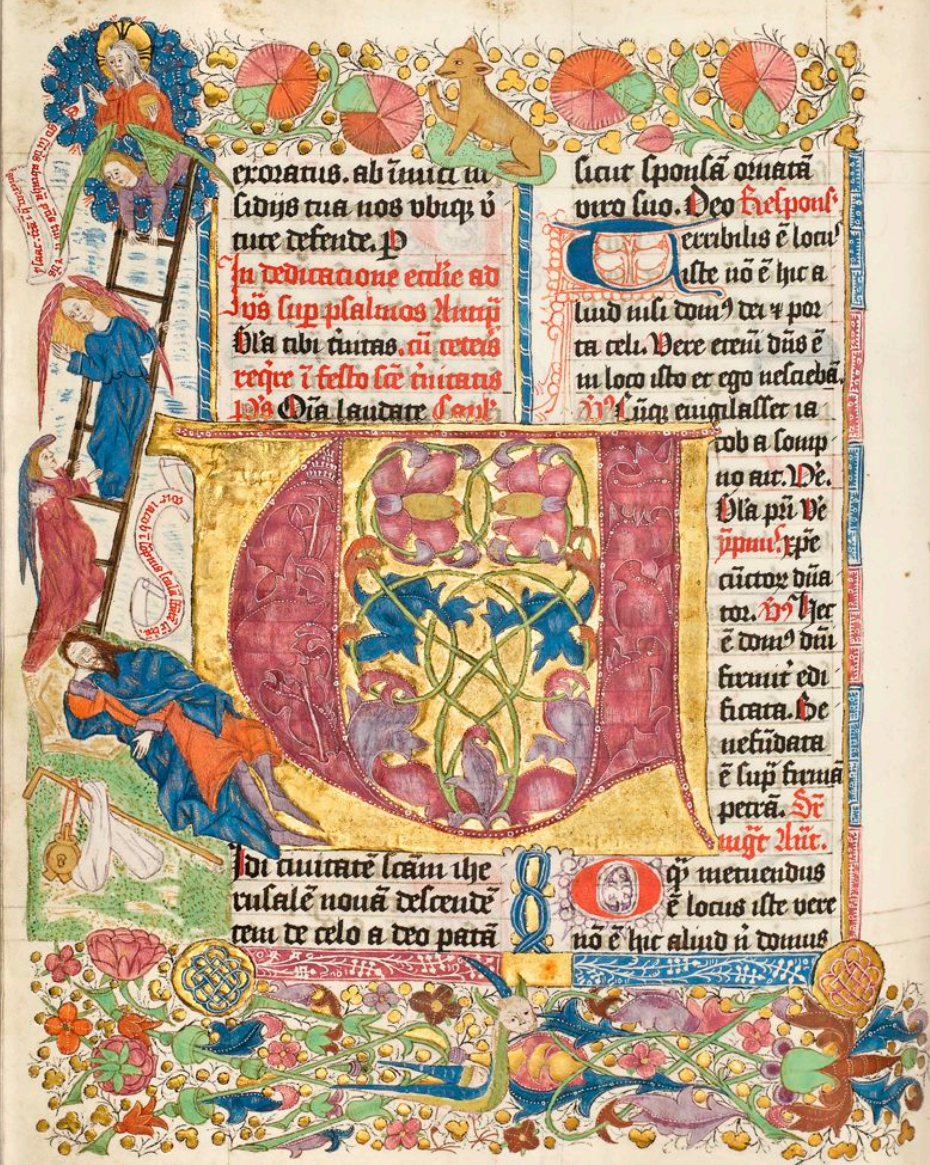 exoratus. ab īimici in
sidijs tua nos vbiqꝫ v̄
tute defende. P
In dedicacione ecclīe ad
vs̄ sup psalmos Antip̄
Gl̄a tibi t̄nitas. cū ceteris
req̄re ī festo sc̄e t̄nitatis
p̄s Oīa laudate Capl̄.
UIdi ciuitatē sc̄am ihe
rusalē nouā descendē
tem de celo a deo patā
sicut sponsā ornatā
viro suo. Deo Respons̄
Terribilis ē locꝰ
iste nō ē hic a
liud nisi domꝰ dei ⁊ por
ta celi. Vere eteni dn̄s ē
in loco isto et ego nesciebā.
Vs̄ Cūqꝫ euigilasset ia
cob a somp
no ait. Ve.
Gl̄a pri Ve
ympnꝰ. xp̄e
cūctor dn̄a
tor. vs̄ hec
ē domꝰ dn̄i
firmit̄ edi
ficata. Be
nefūdata
ē sup̄ firmā
petrā. Sr̄
Aūt.
O q̄ metuendus
ē locus iste vere
nō ē hic aliud n̄ domus
iacob ī scala